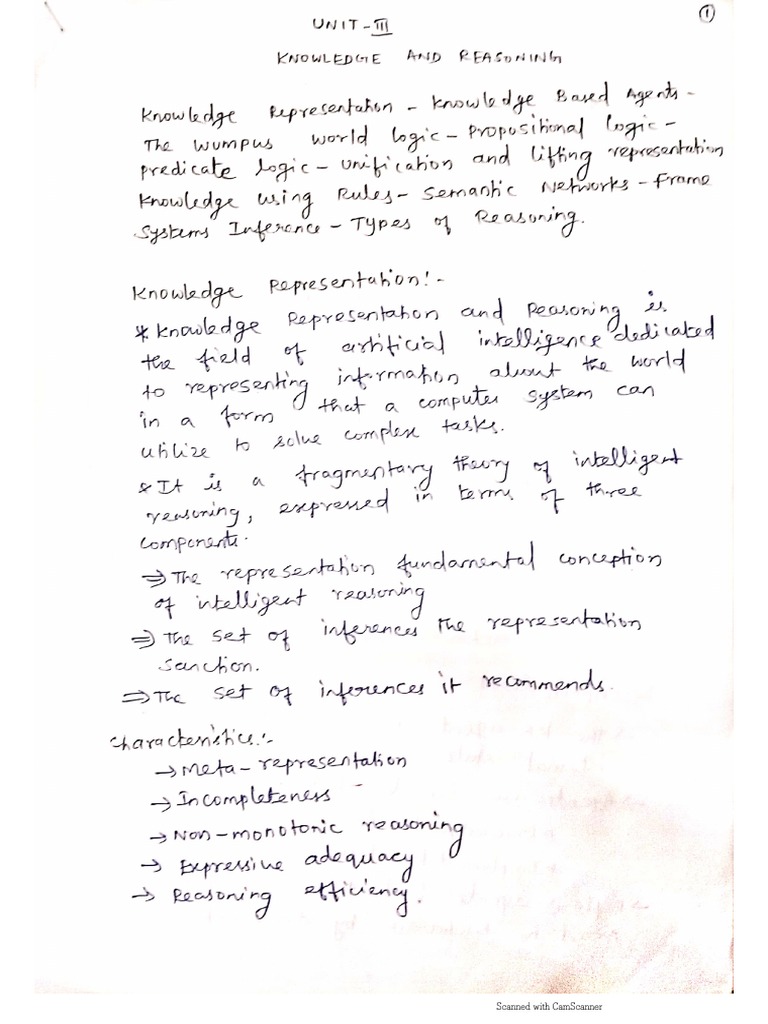 1
UNIT-III
KNOWLEDGE AND REASONING
Knowledge Representation - Knowledge Based Agents -
The wumpus world logic - Propositional logic -
predicate logic - unification and lifting representation
Knowledge using Rules - Semantic Networks - Frame
Systems Inference - Types of Reasoning.
Knowledge Representation:-
* Knowledge Representation and Reasoning is
the field of artificial intelligence dedicated
to representing information about the world
in a form that a computer system can
utilize to solve complex tasks.
* It is a fragmentary theory of intelligent
reasoning, expressed in terms of three
components.
⇒ The representation fundamental conception
of intelligent reasoning
⇒ The set of inferences the representation
sanction.
⇒ The set of inferences it recommends.
Characteristics:-
→ Meta-representation
→ Incompleteness
→ Non-monotonic reasoning
→ Expressive adequacy
→ Reasoning efficiency.
Scanned with CamScanner